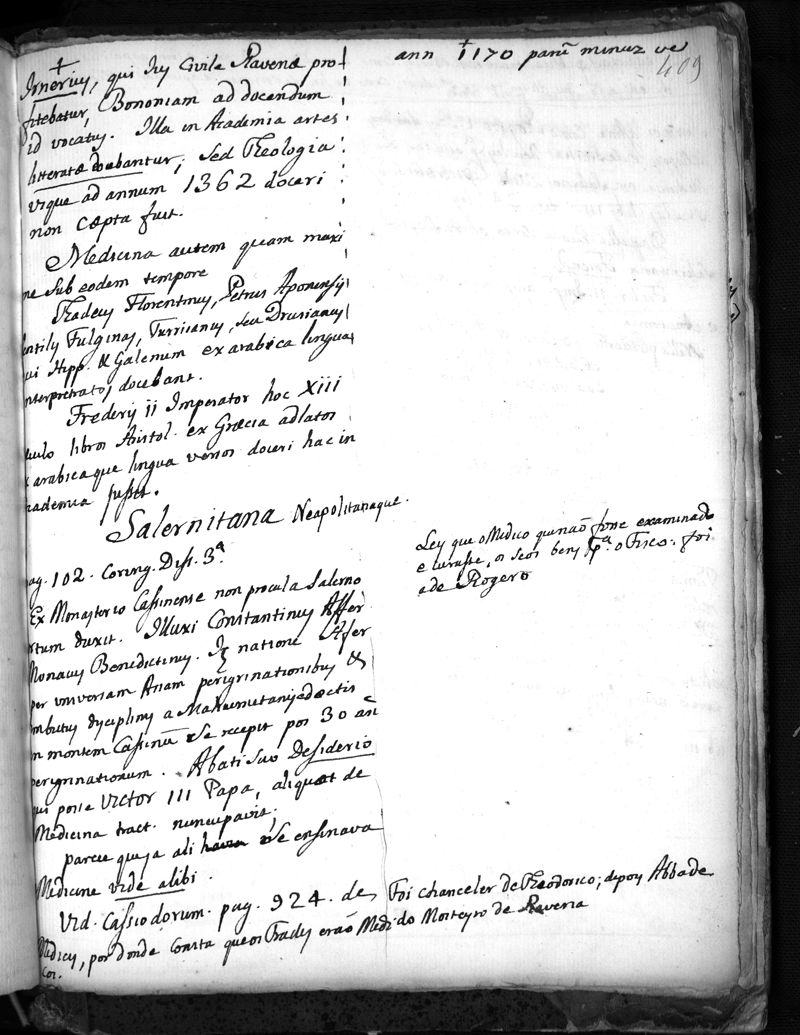 ann † 1170 parũ minuz ve
409
†
Irnerius, qui Jus Civile Ravenæ pro-
fitebatur, Bononiam ad docendum
id vocatus. Illa in Academia artes
litteratæ docebantur; sed Theologia
usque ad annum 1362 doceri
non cæpta fuit.
Medicina autem quam maxi
me sub eodem tempore
Thadeus Florentinus, Petrus Aponensis
entilis Fulginas, Turrianus, seu Drusianus
ui Hipp. & Galenum ex arabica lingua
nterpretratos docebant.
Frederis ii Imperator hoc Xiii
culo libros Aristol. ex Græcia adlatos
x arabicaque lingua versos doceri hac in
cademia jussit.
Salernitana Neapolitanaque.
pag. 102. Coring. Diss. 3ª
Ex Monasterio Cassinense non procul a Salerno
ortum duxit. Illuxi Constantinus Affer
Monacus Benedictinus. Is natione Afer
per universam Asiam peregrinationibus &
imbutus disciplinis a Mahumetanis edoctis
in montem Cassinũ se recepit pos 30 añ
peregrinationum. Abati suo Desiderio
qui posse Victor III Papa, aliquot de
Medicina tract. nuncupavit;
parece que ja ali havia se ensinava
Medicine vide alibi.
Vid. Cassiodorum. pag. 924. de
Medicis, por donde Consta que os Frades eraõ Medi
cos.
Ley que o Medico que naõ fosse examinado
e curasse, os seos bens pª o Fisco: foi
a de Rogero
Foi chanceler de Theodorico; depois Abbade
do Mosteyro de Ravena